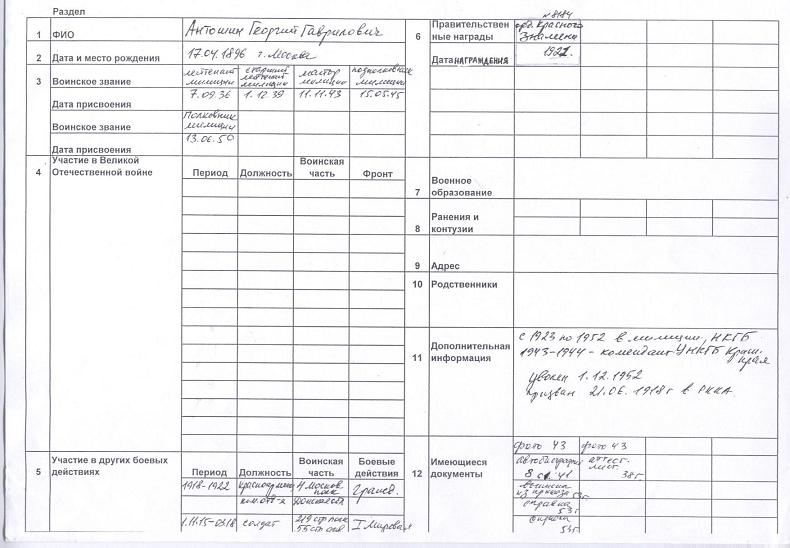 Раздел
1 ФИО Антошин Георгий Гаврилович
2 Дата и место рождения 17.04.1896 г. Москва
3 Воинское звание лейтенант милиции старший лейтенант милиции майор милиции подполковник милиции
Дата присвоения 7.09.36 1.12.39 11.11.43 15.05.45
Воинское звание Полковник милиции
Дата присвоения 13.06.50
4 Участие в Великой Отечественной войне
Период Должность Воинская часть Фронт
5 Участие в других боевых действиях
Период Должность Воинская часть Боевые действия
1918-1922 Красноармеец 4 Москов. полк Гражд.
1.11.15-03.18 солдат 219 стр полк I Мировая
№ 8484
6 Правительственные награды орд. Красного Знамени
Дата награждения 1921.
7 Военное образование
8 Ранения и контузии
9 Адрес
10 Родственники
11 Дополнительная информация
с 1923 по 1952 в милиции, НКГБ
1943-1944 - комендант УНКГБ Края
уволен 1.12.1952
призван 21.06.1918г в РККА.
12 Имеющиеся документы
фото 43 фото 43
Автобиография аттест. лист.
41 38г
выписка из приказа 53г
справка 53г
53г